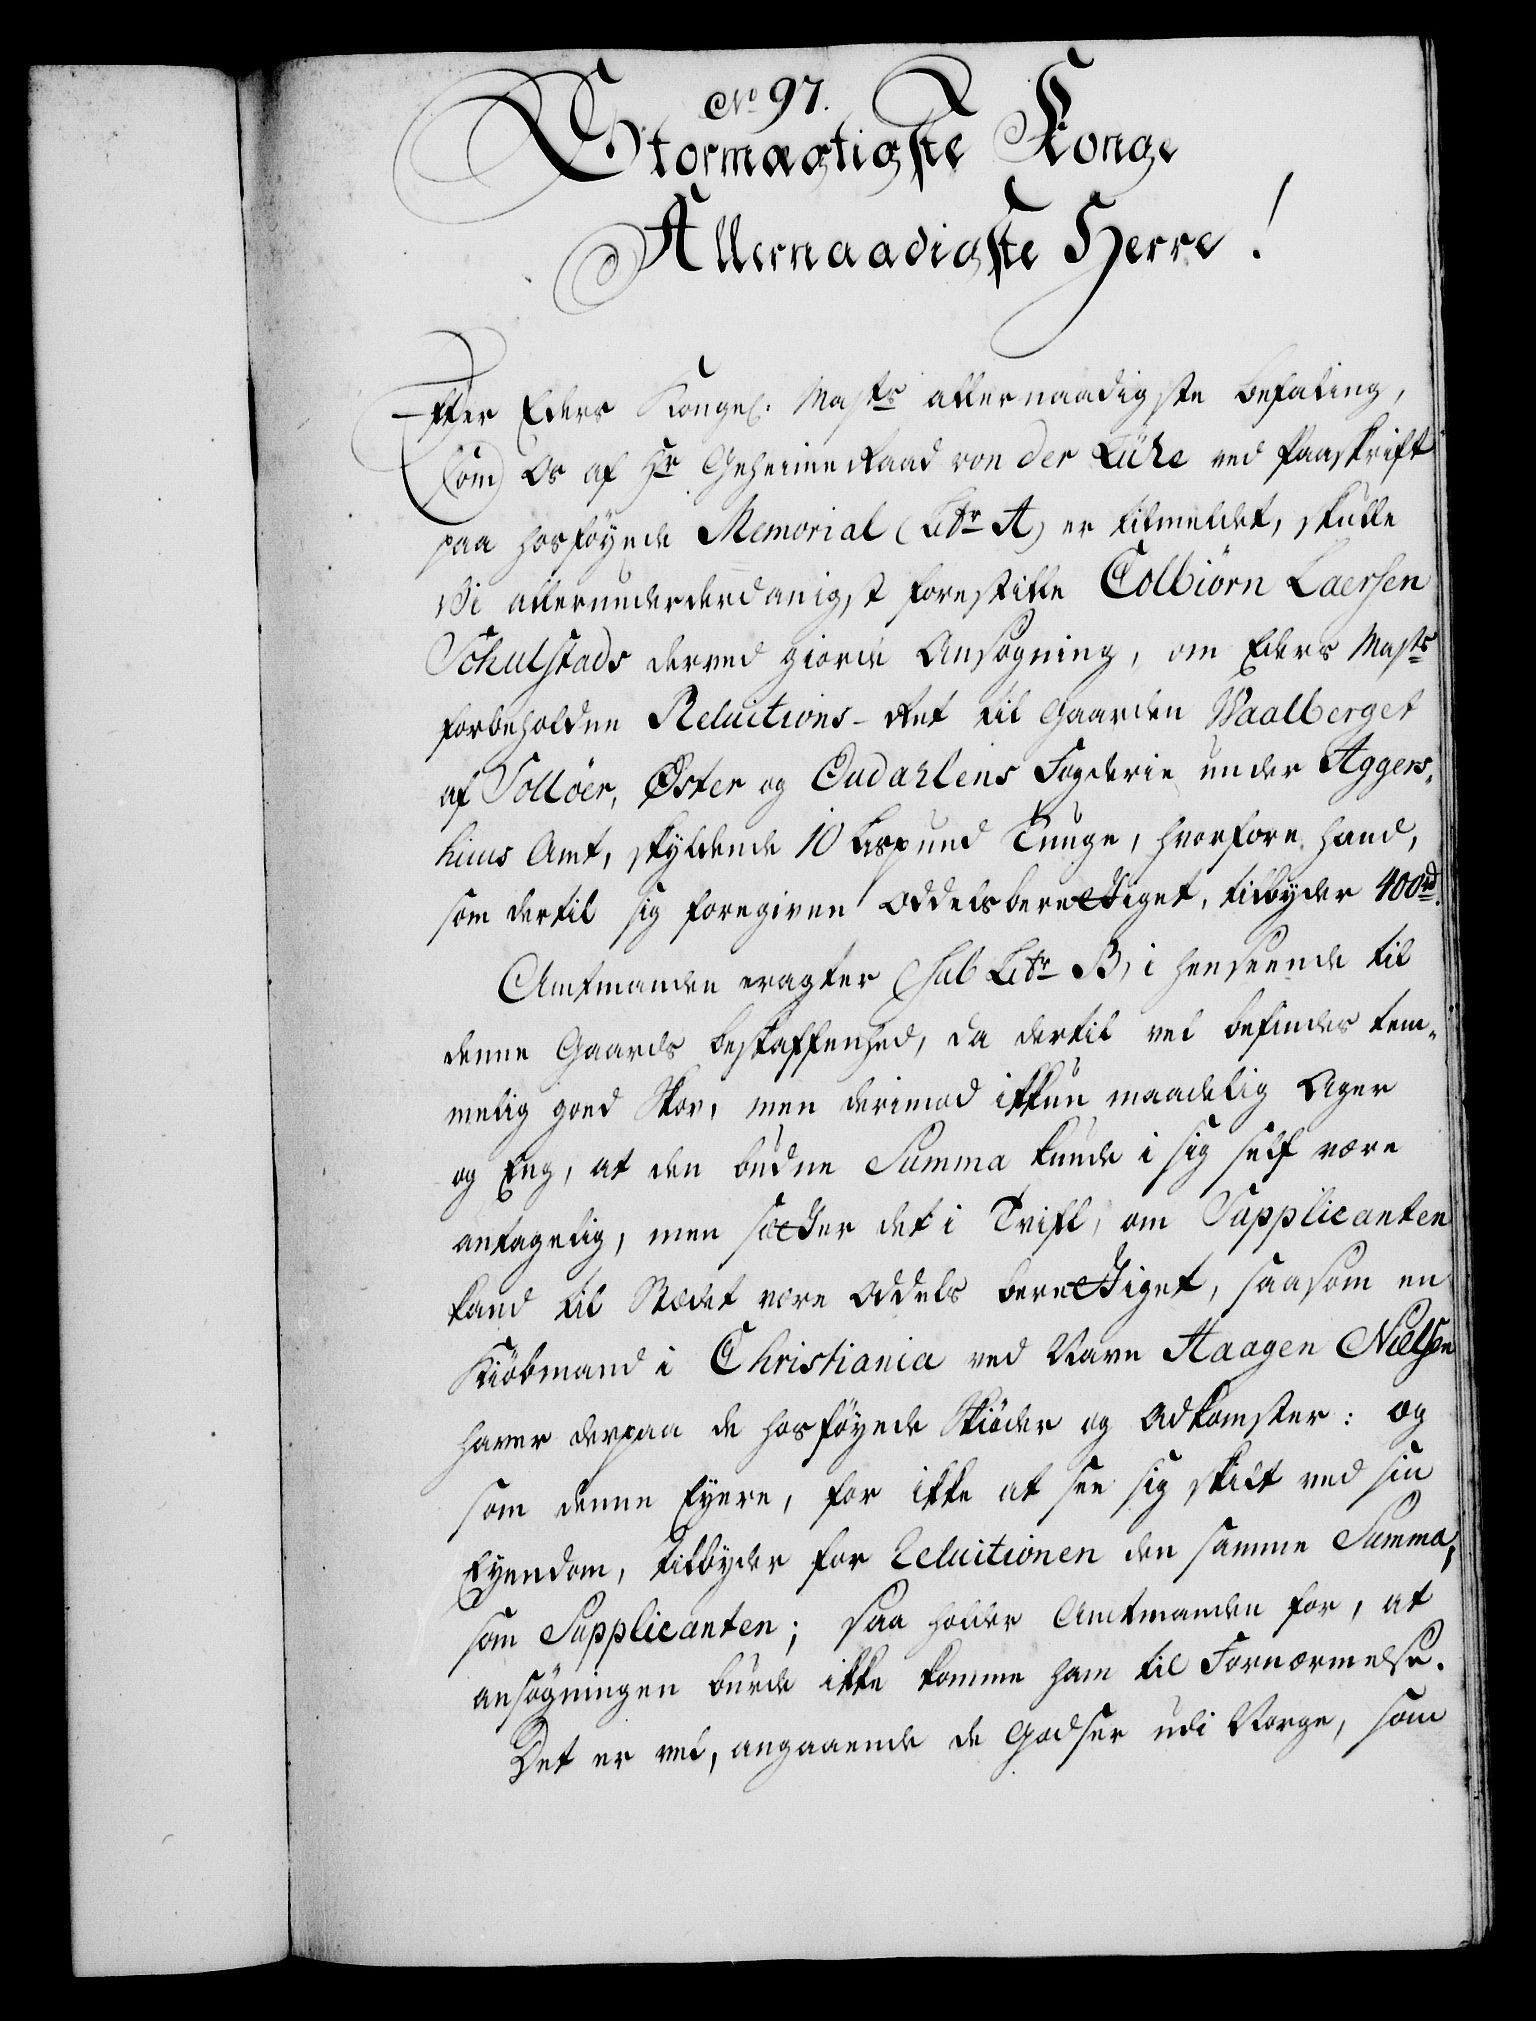 No 97.
Stormægtigste Konge
Allernaadigste Herre!
Efter Eders Kongel. Majts allernaadigste Befaling,
som Os af Hr Geheime Raad von der Lühe ved Paaskrift
paa hosføyede Memorial (Litr A) er tilmeldet, skulle
Vi allerunderdanigst forestille Colbiörn Laersen
Schulstads derved giorde Ansøgning, om Eders Majts
forbeholdne Reluitions-Ret til Gaarden Waalberget
af Solløer, Øster og Oudahlens Fogderie under Aggers-
huus Amt, skyldende 10 Lispund Tunge, hvorfore hand,
som dertil sig foregiver Oddelsberettiget, tilbyder 400rd.
Amtmanden eragter (sub Litr B) i henseende til
denne Gaards beskaffenhed, da dertil vel befindes tem-
melig goed Skov, men derimod ikkun maadelig Ager
og Eng, at den budne Summa kunde i sig self være
antagelig, men sætter det i Tvifl, om Supplicanten
kand til Stædet være Oddels berettiget, saasom en
Kiöbmand i Christiania ved Navn Haagen Nielsen
haver derpaa de hosføyede Skiøder og Adkomster: og
som denne Eyere, for ikke at see sig skilt ved sin
Eyendom, tilbyder for Reluitionen den samme Summa,
som Supplicanten; saa holder Amtmanden for, at
ansøgningen burde ikke komme ham til Fornærmelse.
Det er vel, angaaende de Godser udi Norge, som